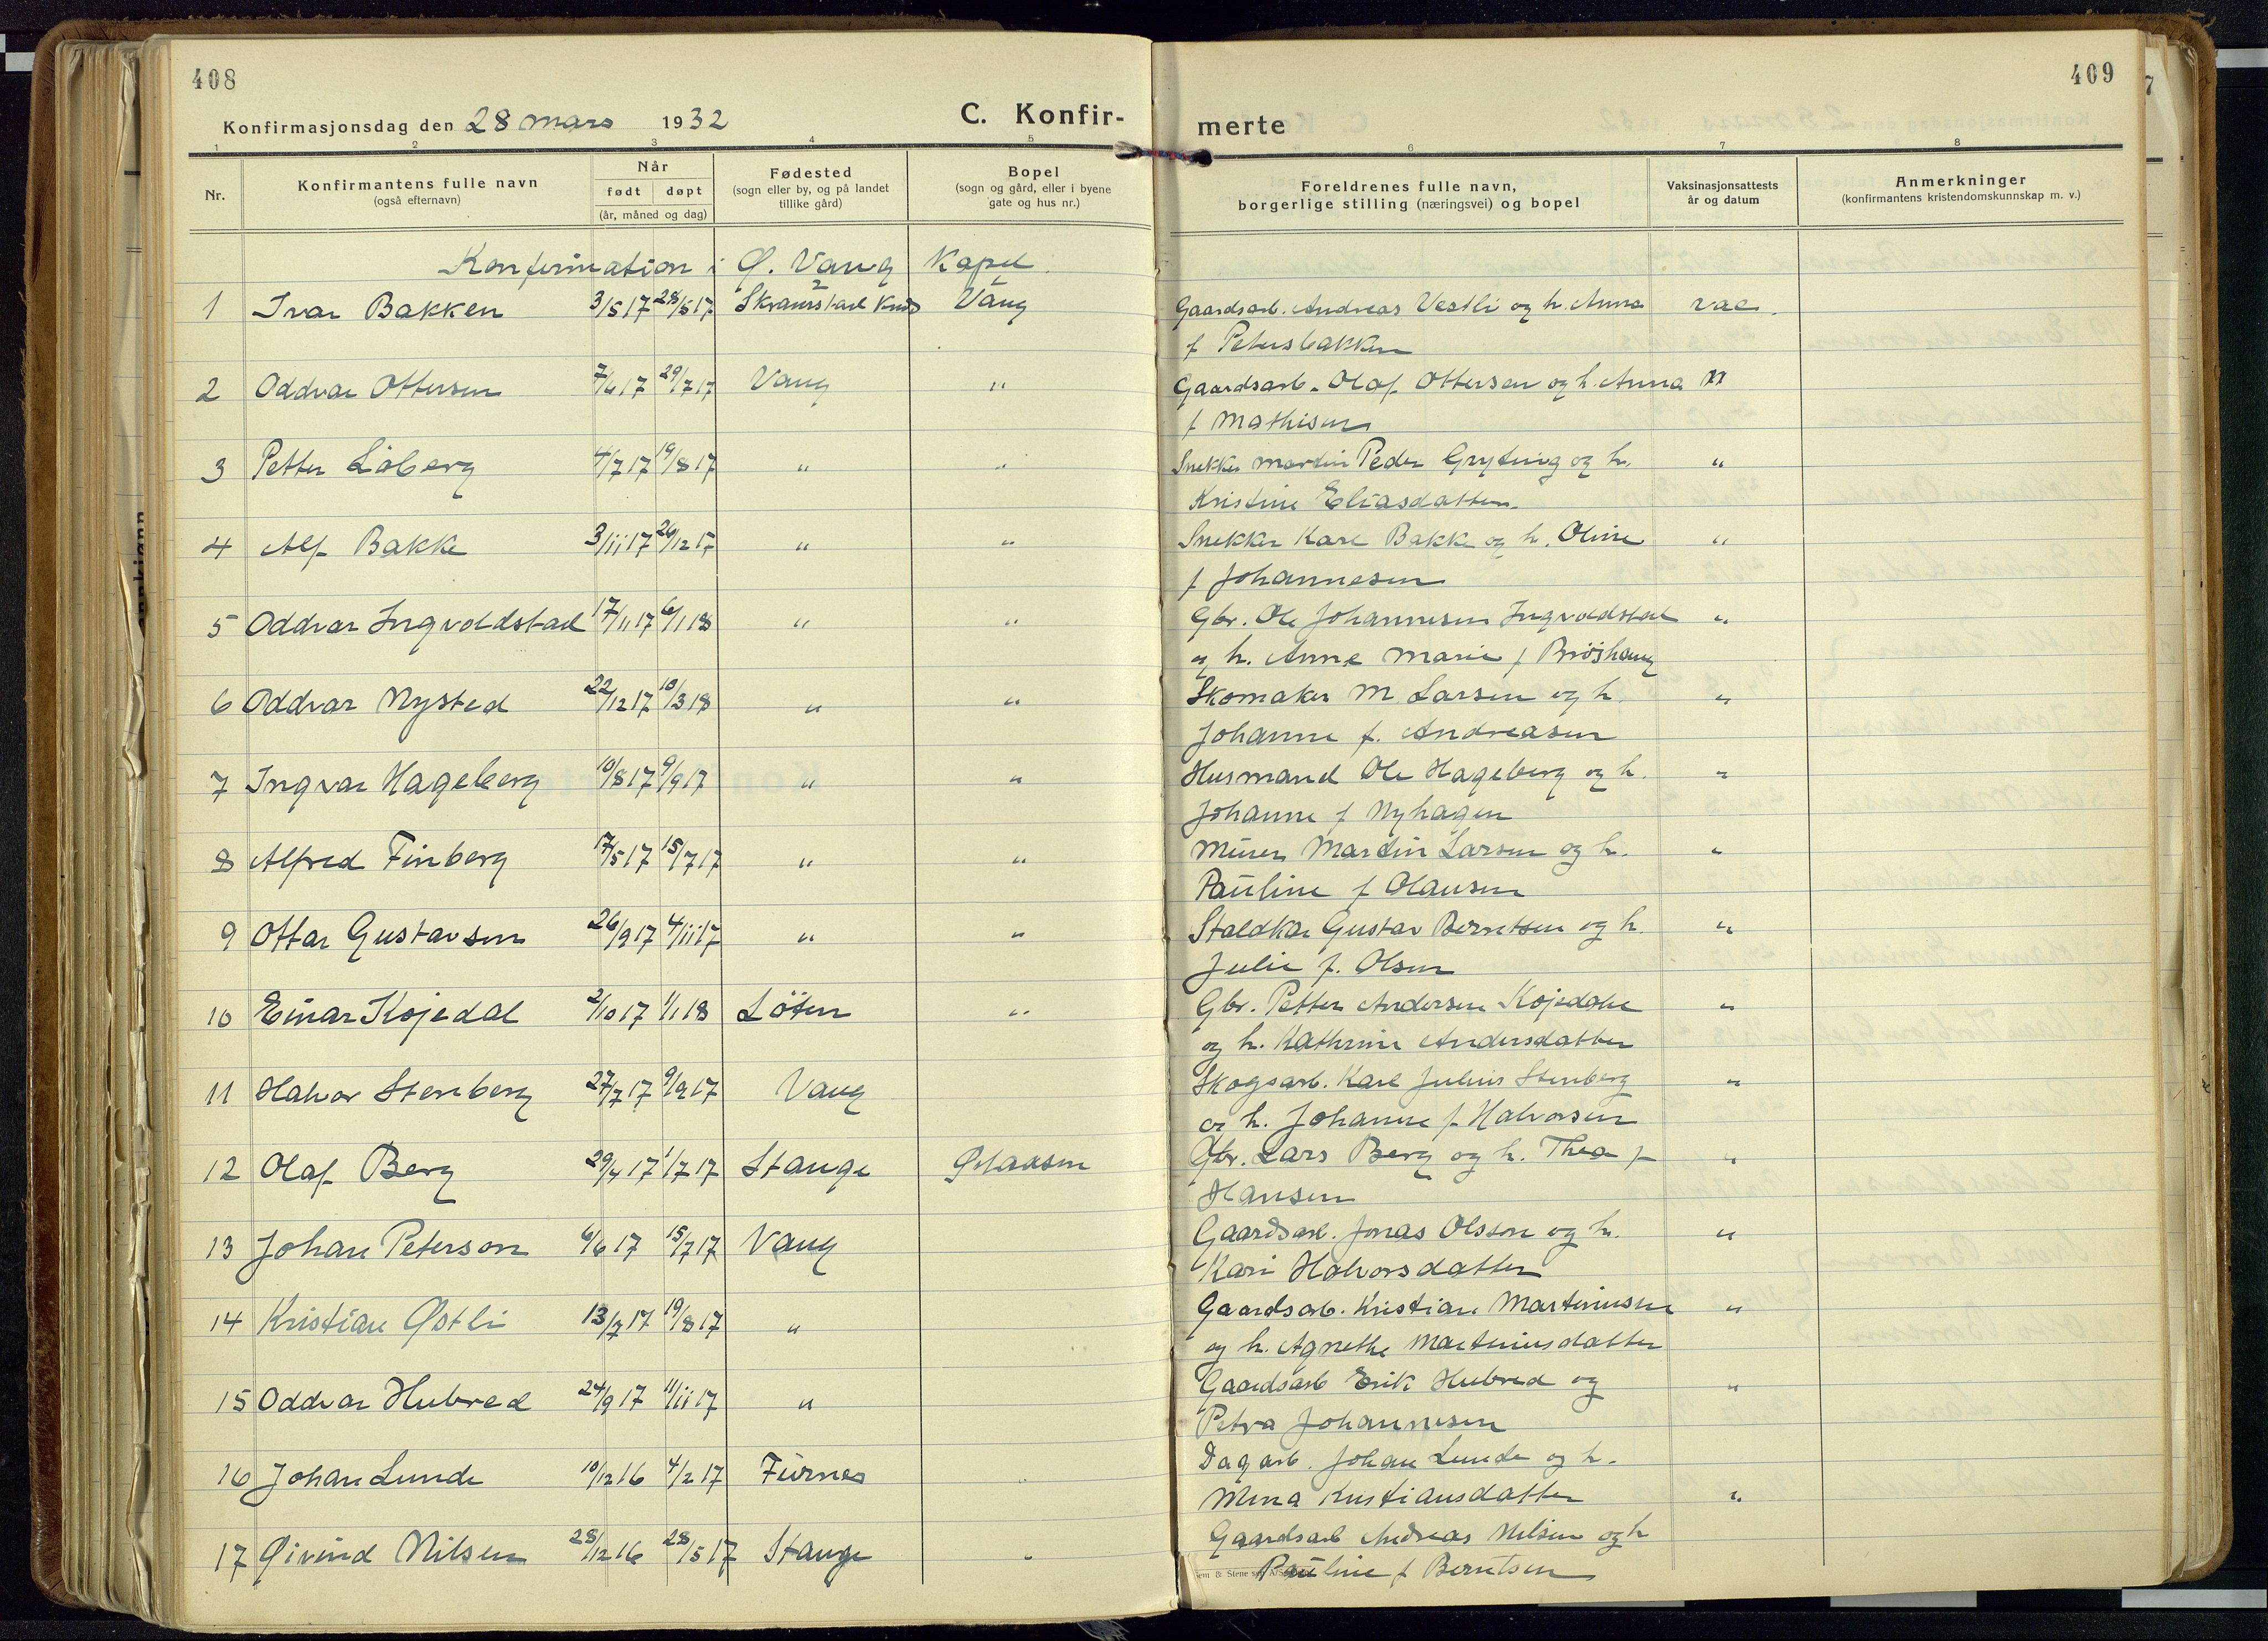 408
409
Konfirmasjonsdag den 28 mars 1932
C. Konfir-
merte
1 2 3 4 5 6 7 8
Nr.
Konfirmantens fulle navn
(også efternavn)
Når
født døpt
(år, måned og dag)
Fødested
(sogn eller by, og på landet
tillike gård)
Bopel
(sogn og gård, eller i byene
gate og hus nr.)
Foreldrenes fulle navn,
borgerlige stilling (næringsvei) og bopel
Vaksinasjonsattests
år og datum
Anmerkninger
(konfirmantens kristendomskunnskap m. v.)
Konfirmation i Ø. Vang Kapel
1 Ivar Bakken 3/5 17 28/5 17 Vang Gaardsarb. Andreas Vestli og h. Anna vac.
f Petersbakken
2 Oddvar Ottersen 29/7 17 Vang " Gaardsarb. Olaf Ottersen og h. Anna "
f Mathisen
3 Petter Löberg 4/7 17 19/8 17 " " Snekker Martin Peder Gryting og h. "
Kristine Eliasdatter
4 Alf Bakke 3/11 17 26/12 17 " " Snekker Karl Bakke og h. Oline "
f Johannesen
5 Oddvar Ingvoldstad 17/11 17 6/1 18 " " Gbr. Ole Johannesen Ingvoldstad "
og h. Anne Marie f
6 Oddvar Nysted 22/12 17 10/3 18 " " Skomaker M. Larsen og h. "
Johanne f. Andreasen
7 Ingvar Hageberg 10/8 17 9/9 17 " " Husmand Ole Hageberg og h. "
Johanne f Nyhagen
8 Alfred Finberg 17/5 17 15/7 17 " " Murer Martin Larsen og h. "
Pauline f Olausen
9 Ottar Gustavsen 26/9 17 4/11 17 " " Staldkar Gustav Berntsen og h. "
Julie f. Olsen
10 Einar Kojedal 2/10 17 1/1 18 Löten " Gbr. Petter Andersen Kojedal "
og h. Kathrine Andersdatter
11 Halvor Stenberg 27/7 17 9/9 17 Vang Skogsarb. Karl Julius Stenberg "
og h. Johanne f Halvorsen
12 Olaf Berg 29/4 17 1/7 17 Stange Gbr. Lars Berg og h. Thea f "
Hansen
13 Johan Peterson 6/6 17 15/7 17 Vang Gaardsarb. Jonas Olsson og h. "
Kari Halvorsdatter
14 Kristian Østli 13/7 17 19/8 17 " Gaardsarb. Kristian Martiniussen "
og h. Agnethe Martiniusdatter
15 Oddvar Hubred 24/9 17 11/11 17 " Gaardsarb Erik Hubred og "
Petra Johannesen
16 Johan Lunde 10/12 16 4/2 17 Furnes " Dagarb. Johan Lunde og h.
Mina Kristiansdatter "
17 Øivind Nilsen 28/12 16 28/5 17 Stange " Gaardsarb Andreas Nilsen og h
Pauline f Berntsen